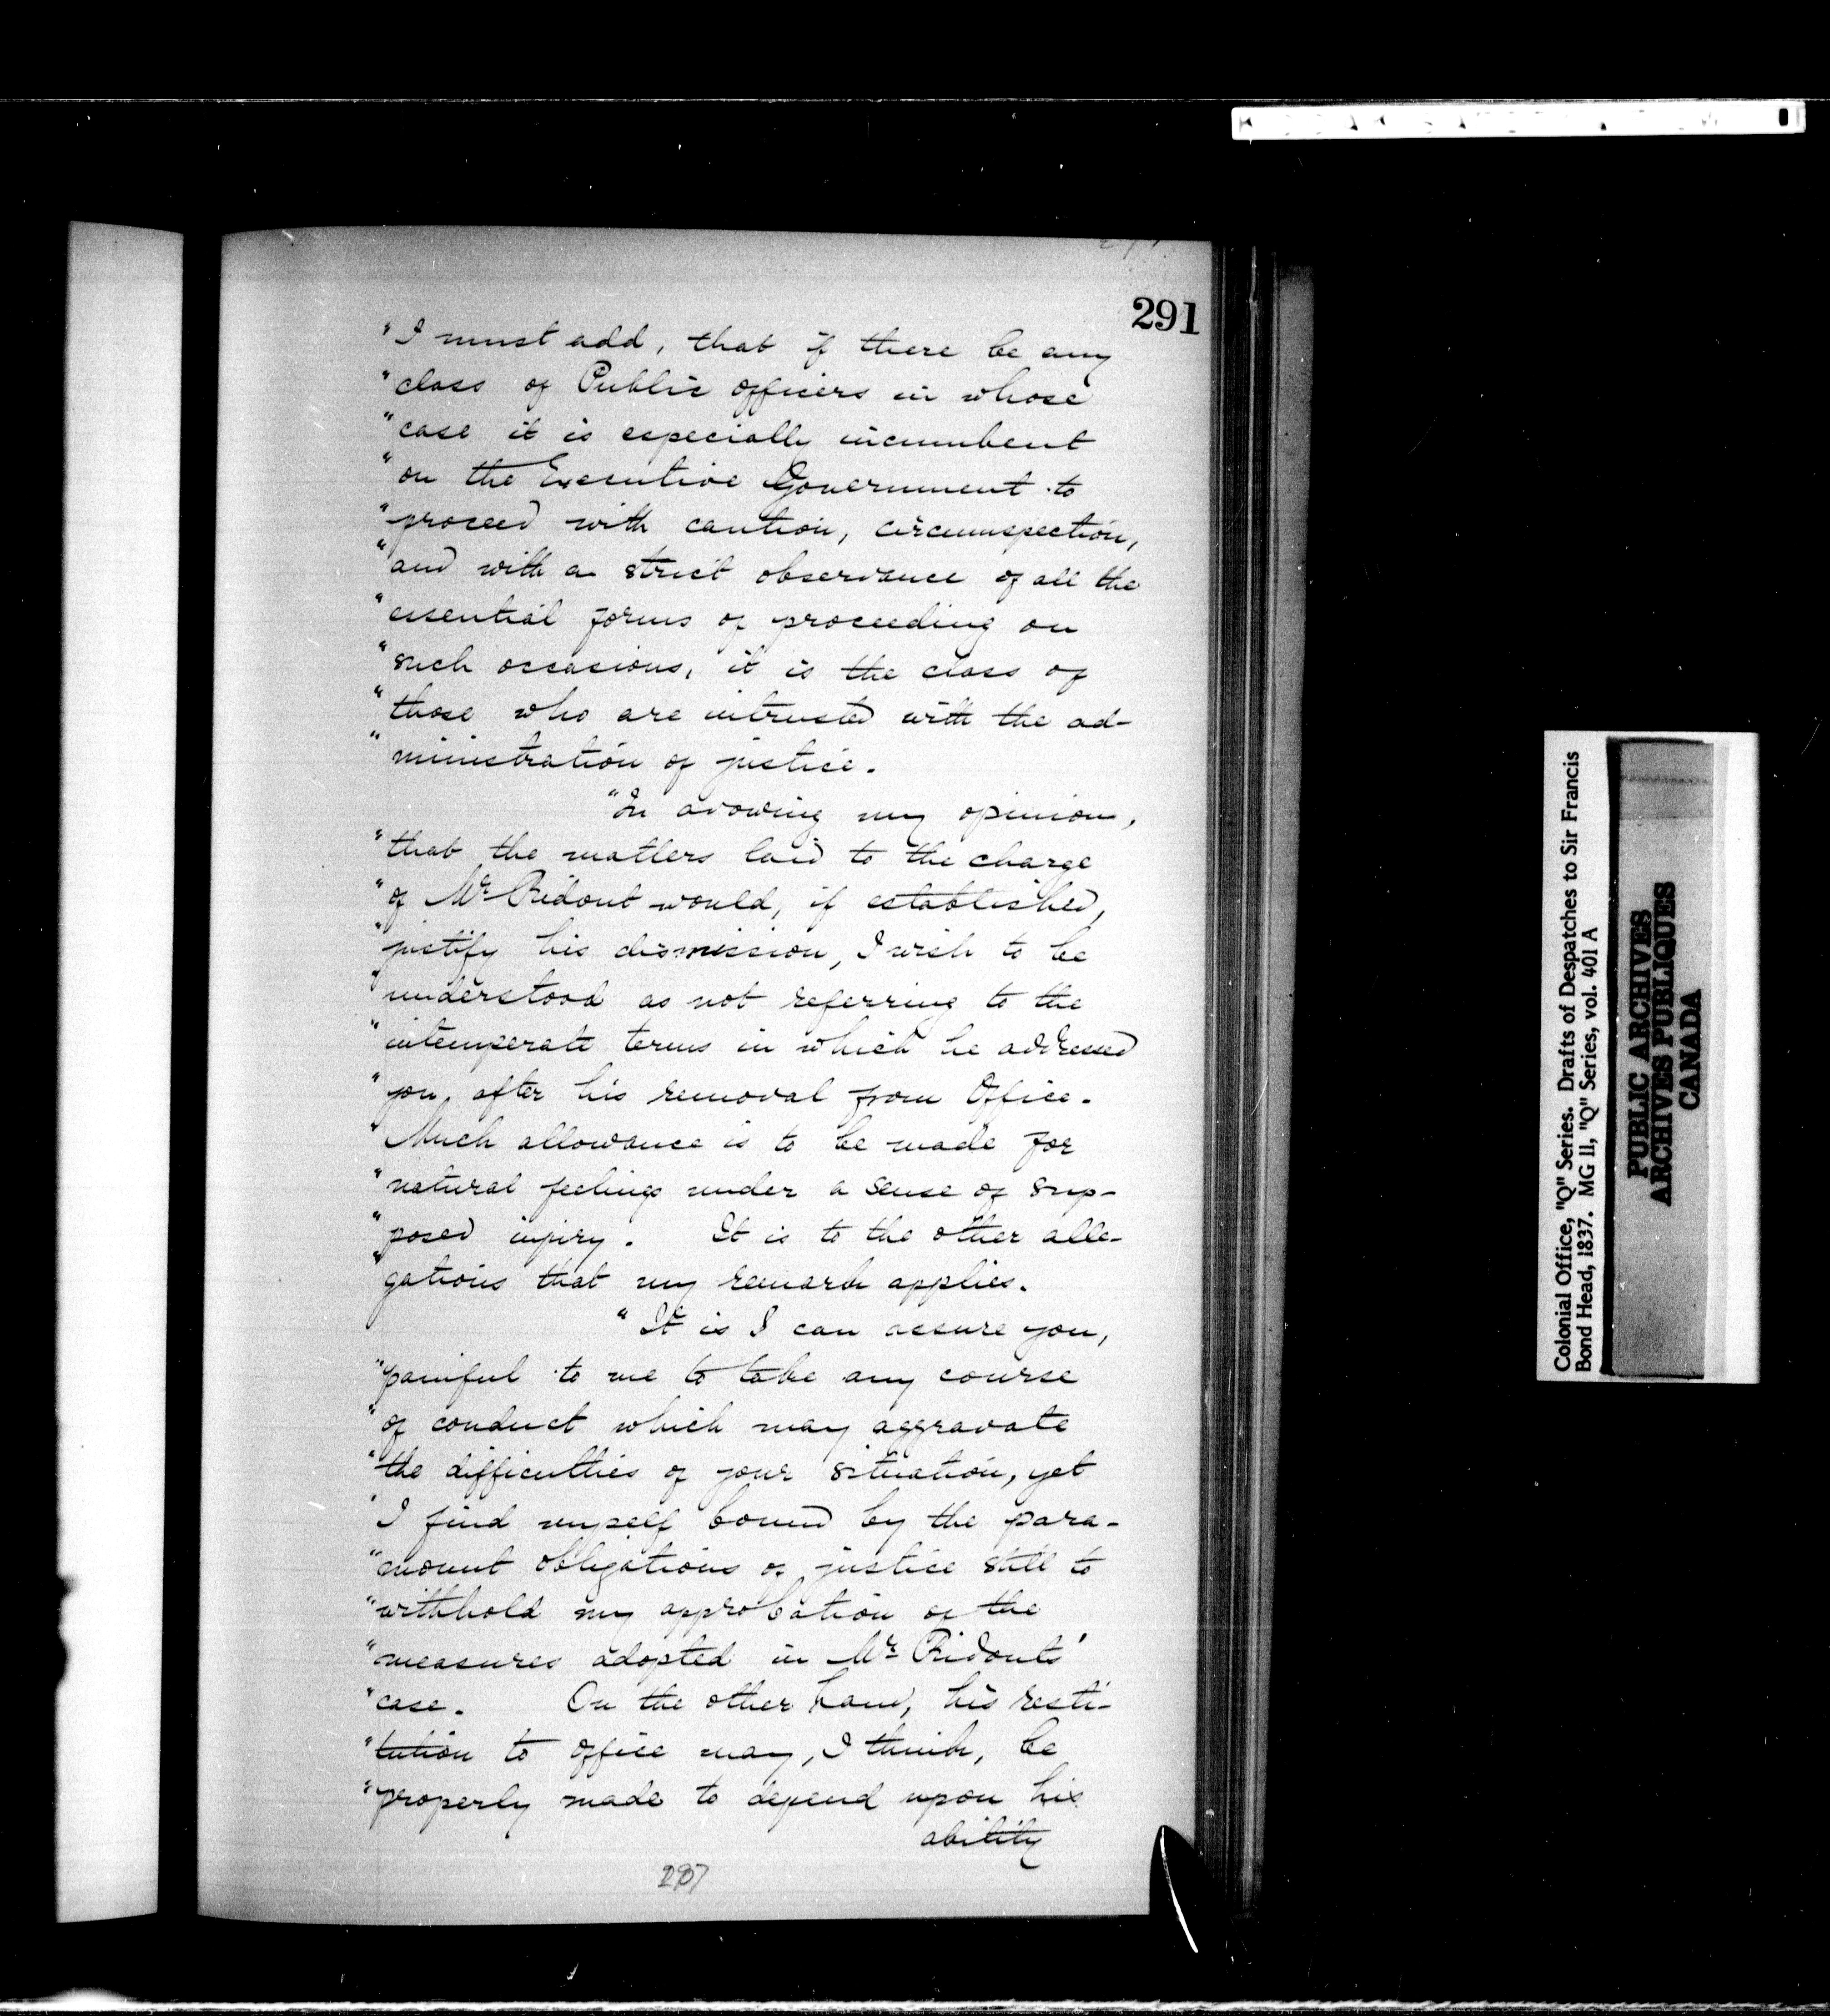 291
"I must add, that if there be any
"class of Public officers in whose
"case it is especially incumbent
"on the Executive Government to
"proceed with caution, circumspection,
"and with a strict observance of all the
"essential forms of proceeding on
"such occasions, it is the class of
"those who are intrusted with the ad-
"ministration of justice.
"In avowing my opinion,
"that the matters laid to the charge
"of Mr Ridout would, if established,
"justify his dismission, I wish to be
"understood as not referring to the
"intemperate terms in which he addressed
"you, after his removal from Office.
"Much allowance is to be made for
"natural feelings under a sense of sup-
"posed injury. It is to the other alle-
"gations that my remark applies.
"It is I can assure you,
"painful to me to take any course
"of conduct which may aggravate
"the difficulties of your situation, yet
"I find myself bound by the para-
"mount obligations of justice still to
"withhold my approbation of the
"measures adopted in Mr Ridouts'
"case. On the other hand, his resti-
"tution to office may, I think, be
"properly made to depend upon his
ability
287
Colonial Office, "Q" Series. Drafts of Despatches to Sir Francis
Bond Head, 1837. MG 11, "Q" Series, vol. 401 A
PUBLIC ARCHIVES
ARCHIVES PUBLIQUES
CANADA